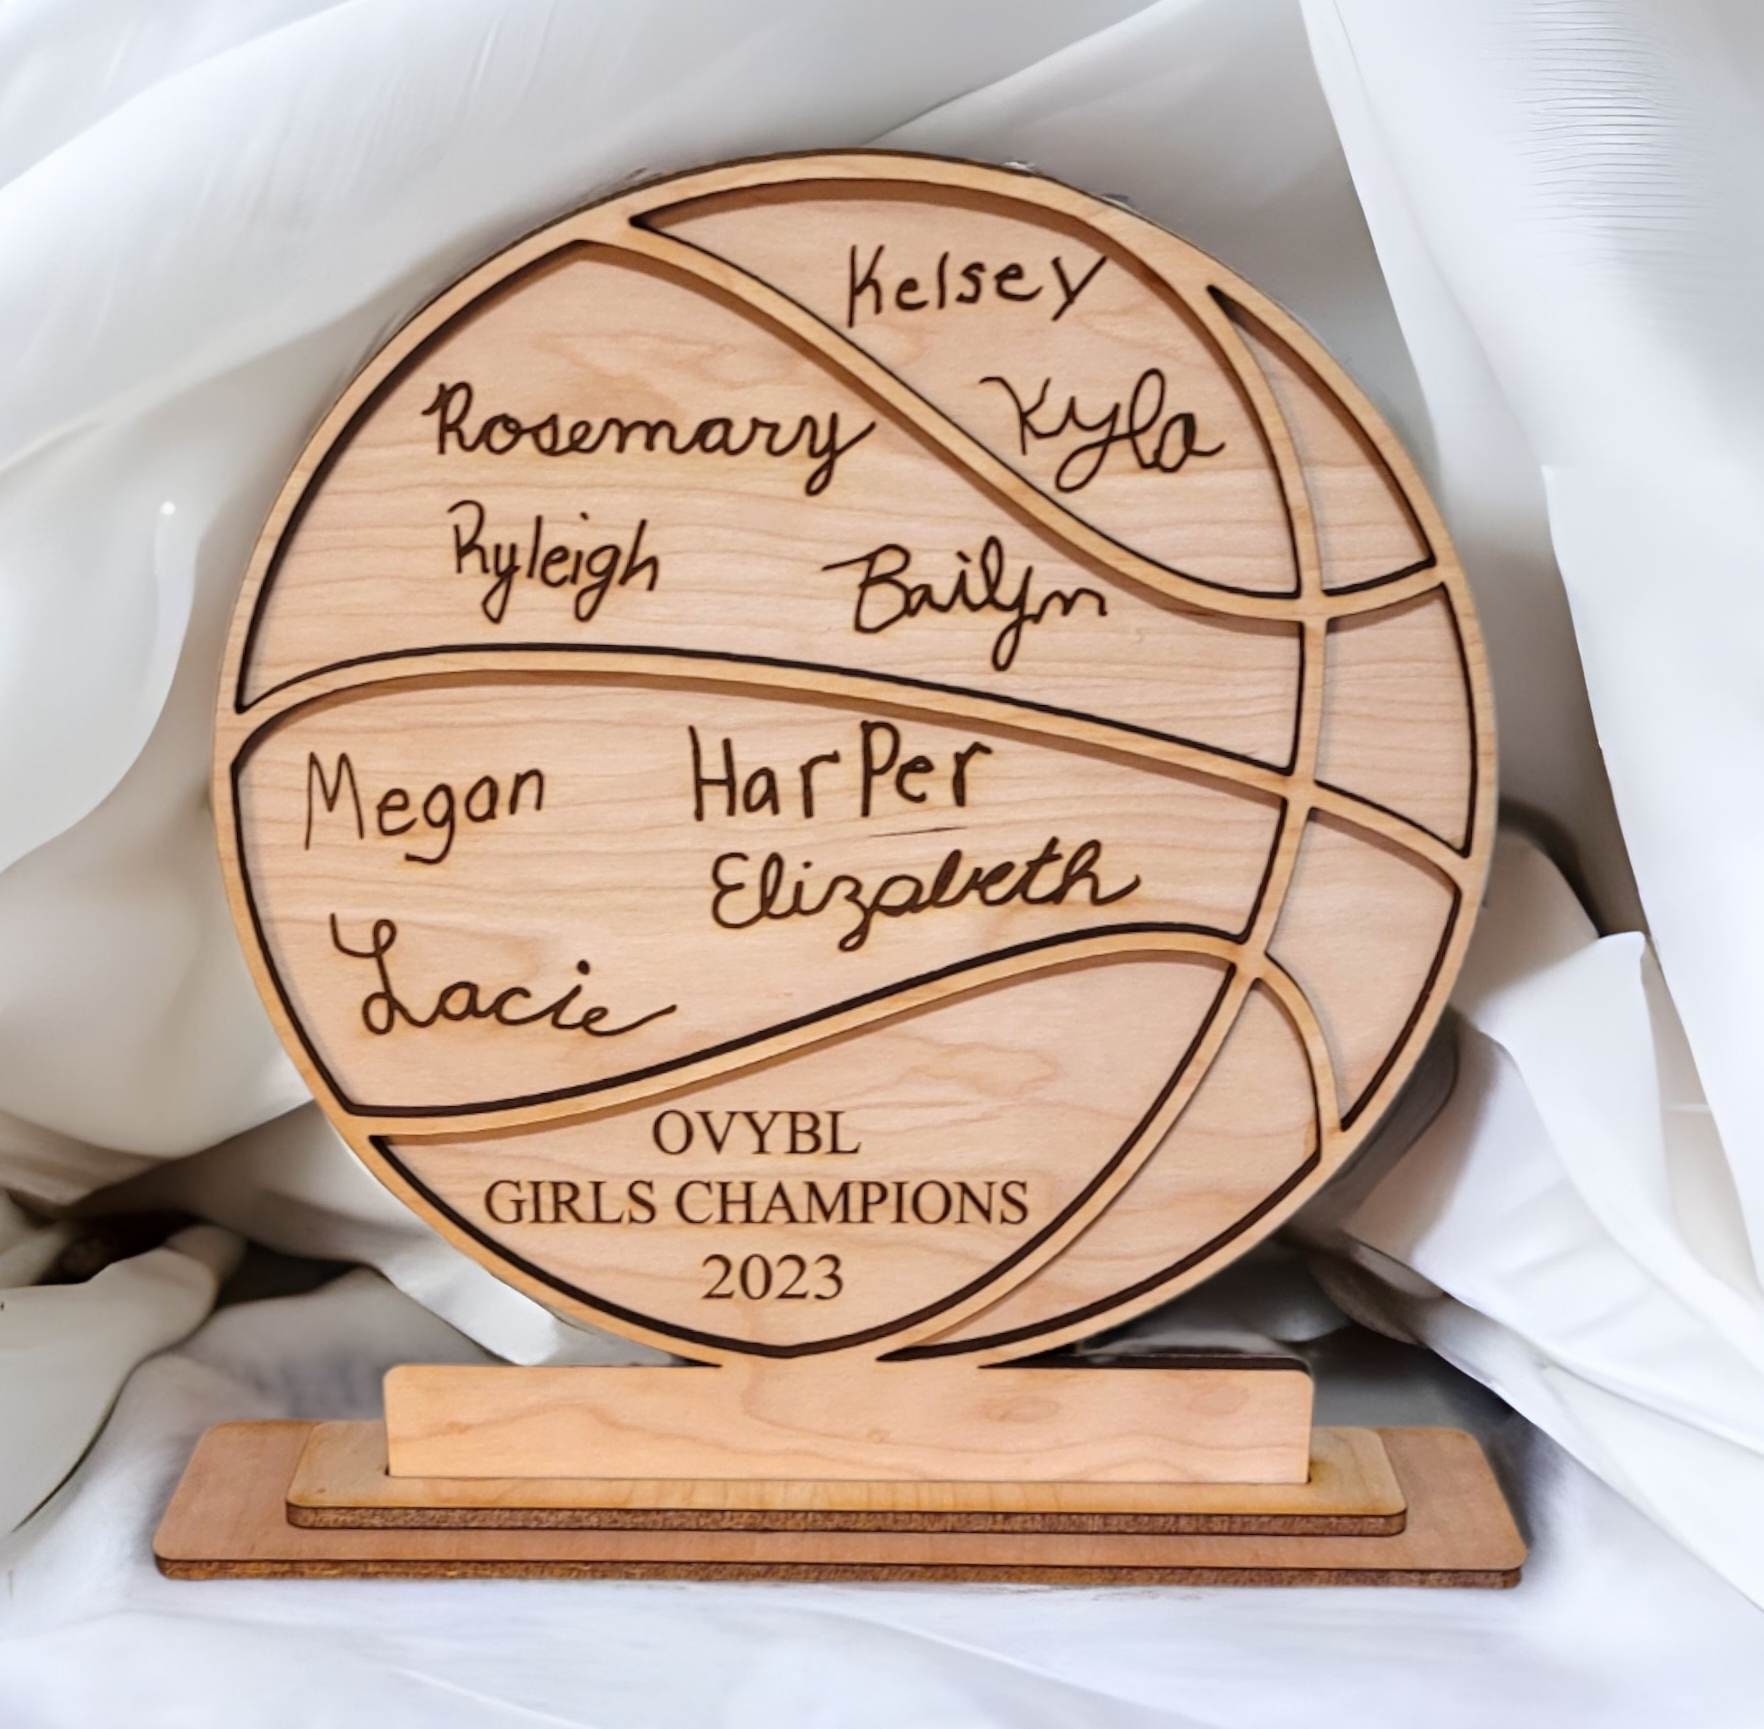 Kelsey
Rosemary
Kyla
Ryleigh
Bailyn
Megan
HarPer
Elizabeth
Lacie
OVYBL
GIRLS CHAMPIONS
2023